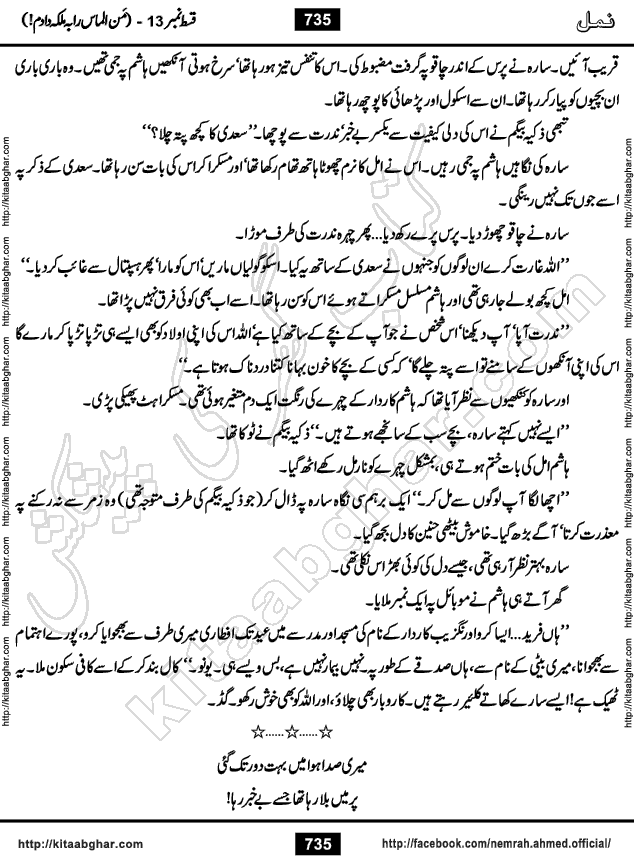 نمل
735
قسط نمبر 13 - (مَن الماس رابہ ملکہ دادم!)
قریب آئیں۔ سارہ نے پرس کے اندر چاقو پہ گرفت مضبوط کی۔ اس کا تنفس تیز ہو رہا تھا‘ سرخ ہوتی آنکھیں ہاشم پہ جمی تھیں۔ وہ باری باری
ان بچیوں کو پیار کر رہا تھا۔ ان سے اسکول اور پڑھائی کا پوچھ رہا تھا۔
تبھی ذکیہ بیگم نے اس کی دلی کیفیت سے یکسر بے خبر‘ ندرت سے پوچھا۔ ’’سعدی کا کچھ پتہ چلا؟‘‘
سارہ کی نگاہیں ہاشم پہ جمی رہیں۔ اس نے امل کا نرم چھوٹا ہاتھ تھام رکھا تھا‘ اور مسکرا کر اس کی بات سن رہا تھا۔ سعدی کے ذکر پہ
اسے جوں تک نہیں رینگی۔
سارہ نے چاقو چھوڑ دیا۔ پرس پرے رکھ دیا... پھر چہرہ ندرت کی طرف موڑا۔
’’اللہ غارت کرے ان لوگوں کو جنہوں نے سعدی کے ساتھ یہ کیا۔ اسکو گولیاں ماریں‘ اس کو مارا‘ پھر ہسپتال سے غائب کر دیا۔‘‘
امل کچھ بولے جا رہی تھی اور ہاشم مسلسل مسکراتے ہوئے اس کو سن رہا تھا۔ اسے اب بھی کوئی فرق نہیں پڑا تھا۔
’’ندرت آپا‘ آپ دیکھنا‘ اس شخص نے جو آپ کے بچے کے ساتھ کیا ہے‘ اللہ اس کی اپنی اولاد کو بھی ایسے ہی تڑپا تڑپا کر مارے گا
اس کی اپنی آنکھوں کے سامنے تو اسے پتہ چلے گا‘ کہ کسی کے بچے کا خون بہانا کتنا درد ناک ہوتا ہے۔‘‘
اور سارہ کو کنکھیوں سے نظر آیا تھا کہ ہاشم کاردار کے چہرے کی رنگت ایک دم متغیر ہوئی تھی۔ مسکراہٹ پھیکی پڑی۔
’’ایسے نہیں کہتے سارہ‘ بچے سب کے سانجھے ہوتے ہیں۔‘‘ ذکیہ بیگم نے ٹوکا تھا۔
ہاشم امل کی بات ختم ہوتے ہی‘ بمشکل چہرے کو نارمل رکھے اٹھ گیا۔
’’اچھا لگا آپ لوگوں سے مل کر۔‘‘ ایک برہم سی نگاہ سارہ پہ ڈال کر (جو ذکیہ بیگم کی طرف متوجہ تھی) وہ زمر سے نہ رکنے پہ
معذرت کرتا‘ آگے بڑھ گیا۔ خاموش بیٹھی حنین کا دل بجھ گیا۔
سارہ بہتر نظر آ رہی تھی‘ جیسے دل کی کوئی بھڑاس نکلی تھی۔
گھر آتے ہی ہاشم نے موبائل پہ ایک نمبر ملایا۔
’’ہاں فرید... ایسا کرو اورنگزیب کاردار کے نام کی مسجد اور مدرسے میں عید تک افطاری میری طرف سے بھجوایا کرو‘ پورے اہتمام
سے بھجوانا‘ میری بیٹی کے نام سے‘ ہاں صدقے کے طور پہ۔ نہیں بیمار نہیں ہے‘ بس ویسے ہی۔ یونو۔‘‘ کال بند کر کے اسے کافی سکون ملا۔ یہ
ٹھیک ہے! ایسے سارے کھاتے کلئیر رہتے ہیں۔ کاروبار بھی چلاؤ‘ اور اللہ کو بھی خوش رکھو۔ گڈ۔
☆......☆......☆
میری صدا ہوا میں بہت دور تک گئی
پر میں بلا رہا تھا جسے بے خبر رہا!
http://kitaabghar.com
735
http://facebook.com/nemrah.ahmed.official/
http://kitaabghar.com
http://kitaabghar.com
http://kitaabghar.com
http://kitaabghar.com
http://kitaabghar.com
http://kitaabghar.com
http://kitaabghar.com
http://kitaabghar.com
http://kitaabghar.com
http://kitaabghar.com
http://kitaabghar.com
http://kitaabghar.com
کتاب گھر کی پیشکش
kitaabghar.com